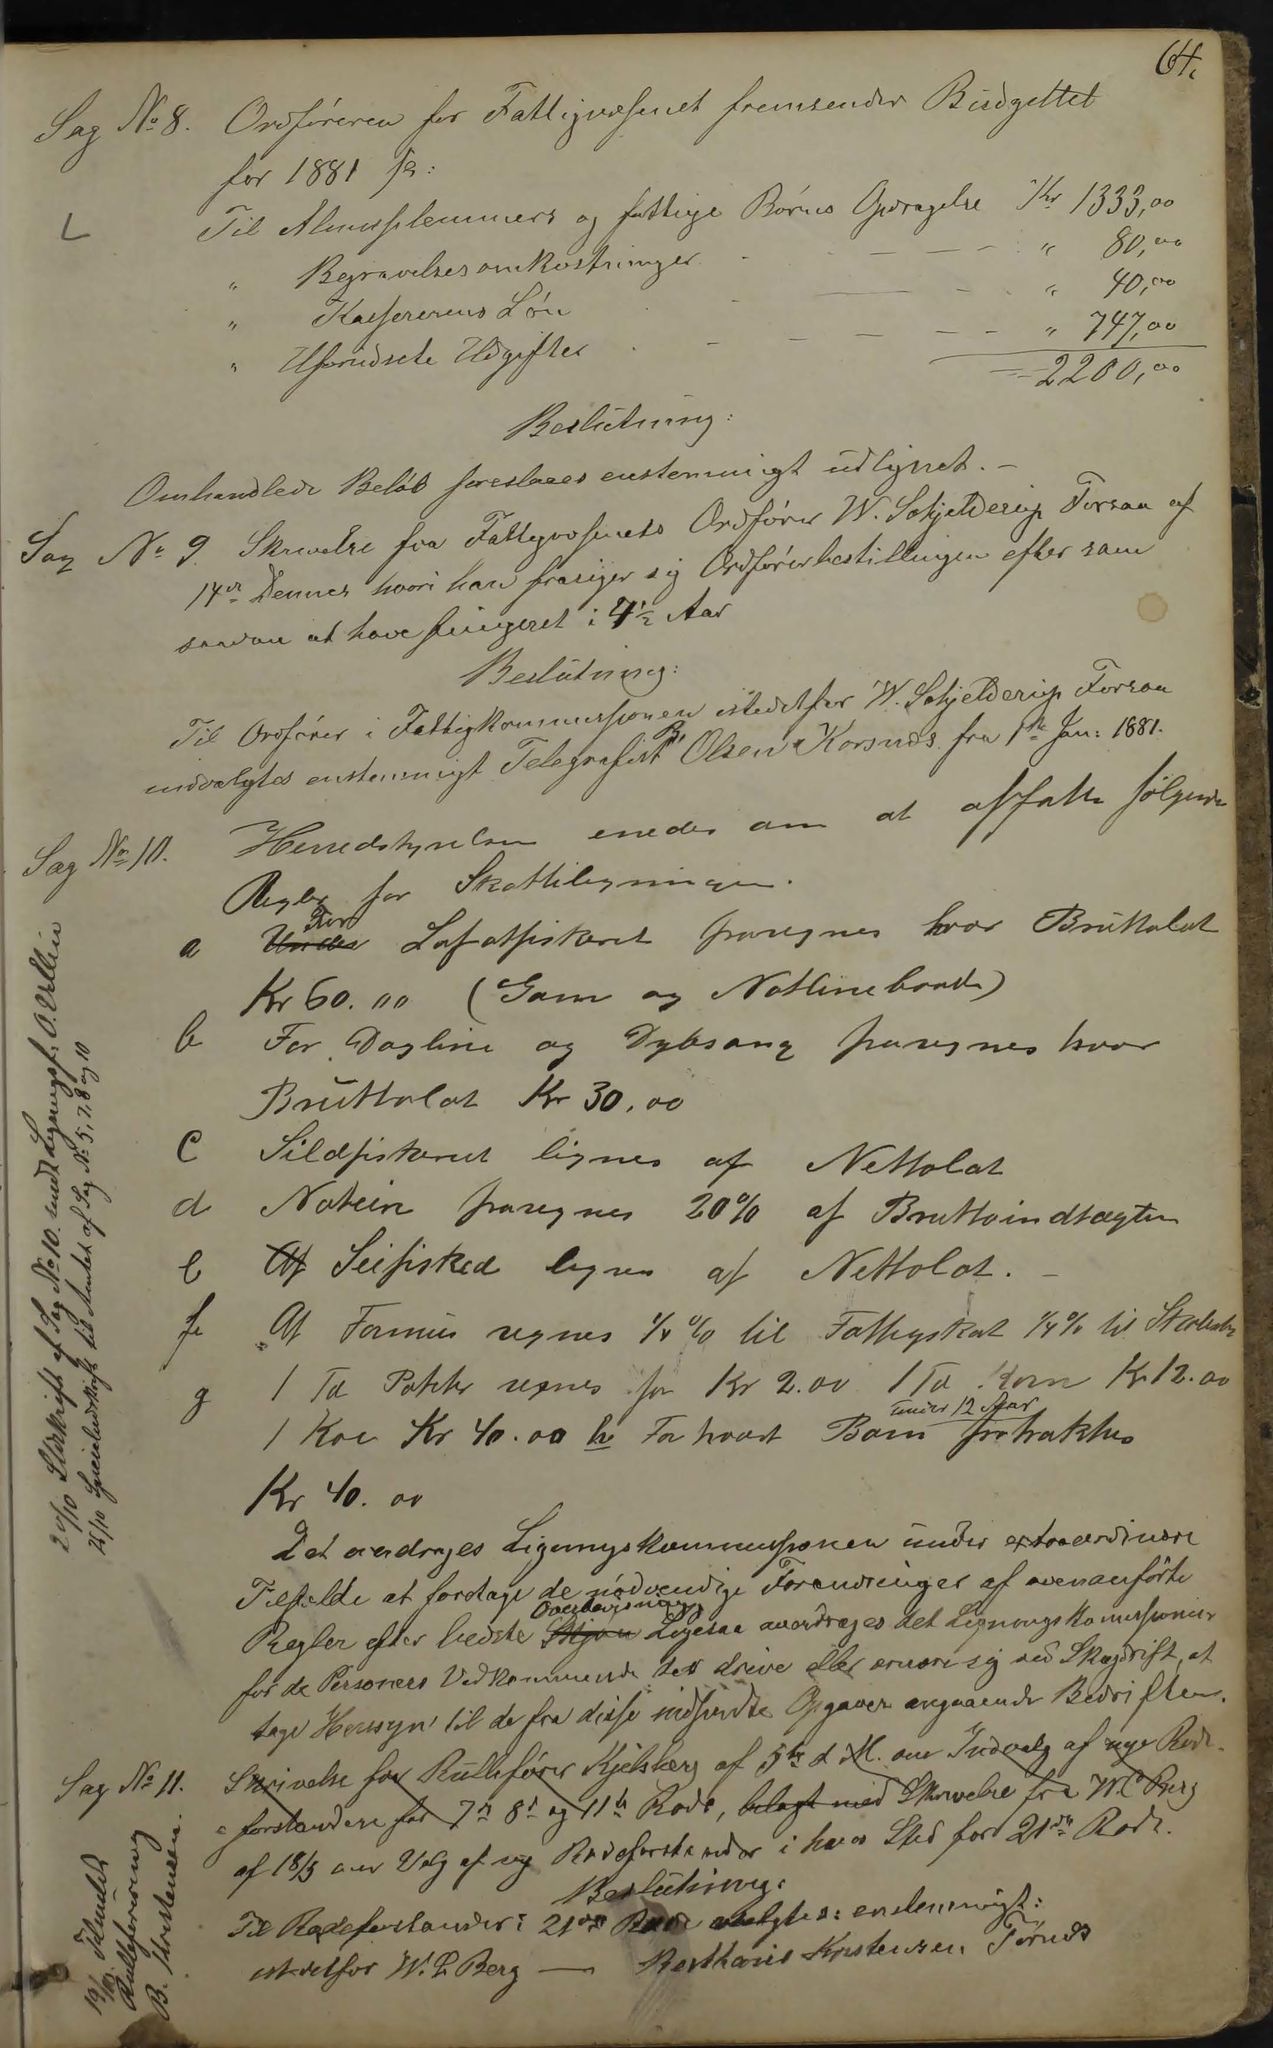 64.
Sag No 8. Ordføreren for Fattigvæsenet fremsender Budgettet
for 1881 fra:
Til Almislemmers og fattige Børns Opdragelse Kr 1333,00
" Begravelsesomkostninger - - - " 80,00
" Kassererens Løn - - - " 40,00
" Uforudsete Udgifter - - - - " 747,00
2200,00
Beslutning:
Omhandlede Beløb foreslaaes enstemmigt udlignet. -
Sag No 9. Skrivelse fra Fattigvæsenets Ordfører W. Schjelderup Torsaa af
14de Dennes hvori han frasiger sig Ordførerbestillingen efter som
saadan at have fungeret i 7 1/2 Aar
Beslutning:
Til Ordfører i Fattigkommissionen istedetfor W. Schjelderup Torsaa
indvalgtes enstemmigt Telegrafist B. Olsen Korsnæs fra 1ste Jan: 1881.
Sag No 10. Herredstyrelsen enedes om at affatte følgende
Regler for Skatteligningen.
a Under For Lofotfiskeriet fraregnes hver Bruttolot
Kr 60.00 (Garn og Natlinebrug)
b For Dagline og Dybsang fraregnes hver
Bruttolot Kr 30.00
c Sildfiskeriet lignes af Nettolot
d Noteier fraregnes 20% af Bruttoindtægten
e Af Seifisket lignes af Nettolot. -
f Af Formue regnes 1/4% til Fattigskat 1/4% til Skoleskat
g 1 Td Poteter regnes for Kr 2.00 1 Td Korn Kr 12.00
1 Koe Kr 40.00 h For hvert Barn under 12 Aar fratrækkes
Kr 40.00
Det overdrages Ligningskommissionen under extraordinære
Tilfælde at foretage de nødvendige Forandringer af ovenanførte
Regler efter bedste Skjøn Overbevisning Ligesaa overdrages det Ligningskommissionen
for de Personers Vedkommende der drive eller ernære sig ved Skogdrift, at
tage Hensyn til de fra disse indsendte Opgaver angaaende Bedriften.
Sag No 11. Skrivelse fra Rullefører Kjelsberg af 5te d. M. om Indvalg af nye Rode-
forstandere for 7de 8de og 11te Rode, belagt med Skrivelse fra W. C. Berg
af 18/5 om Valg af ny Rodeforstander i hans Sted for 21de Rode.
Beslutning:
Til Rodeforstander i 21de Rode valgtes enstemmigt:
istedetfor W. C. Berg — Berthanis Kristensen Tørnæs
20/10 Udskrift af Sag No 10. medt Ligningsf. O.
26/10 Specialudskrift til Amtet af Sag No 5, 7, 8 og 10
19/10 Tilmeldt
Rulleførerenog
B. Kristensen